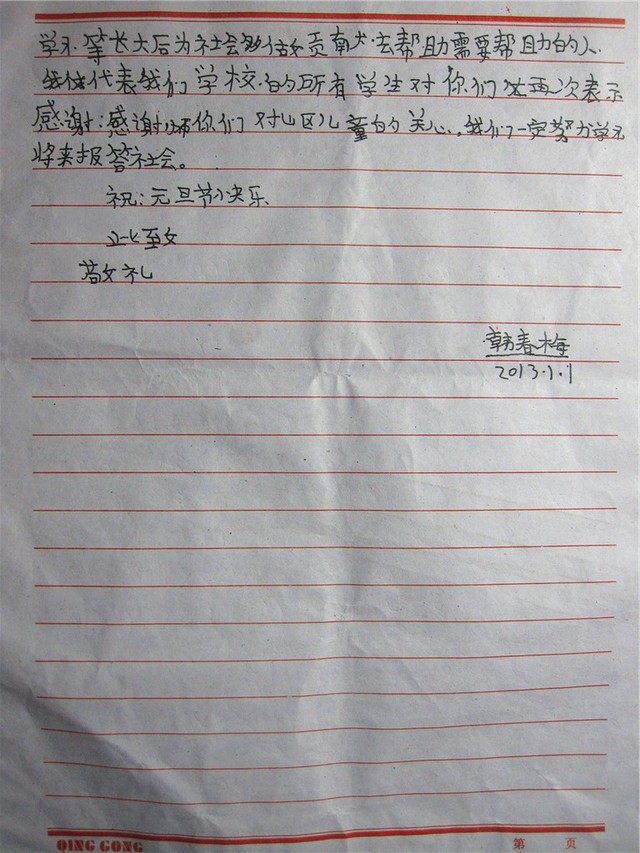 学习 等长大后为社会多做贡献 去帮助需要帮助的人.
我代表我们学校的所有学生对你们在再次表示
感谢:感谢你们对山区儿童的关心.我们一定努力学习
将来报答社会。
祝:元旦节快乐
此至
敬礼
韩春梅
2013.1.1
QING GONG
第 页